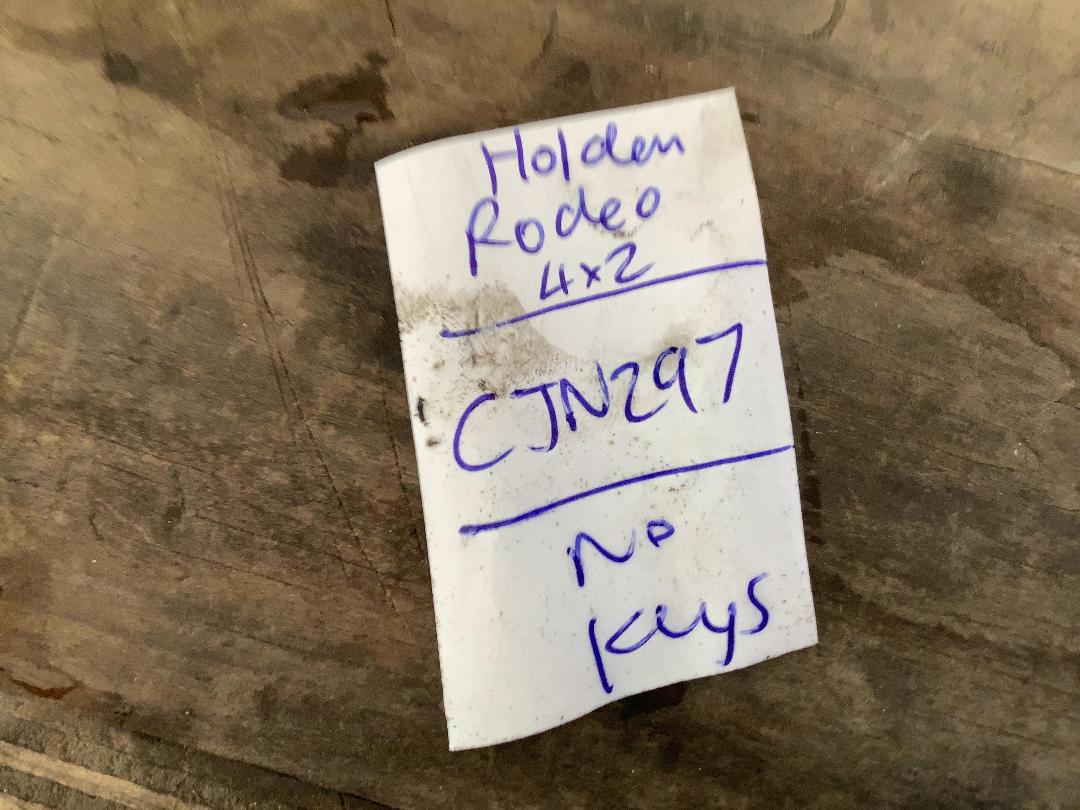 Holden
Rodeo
4x2
CJN297
No
Keys